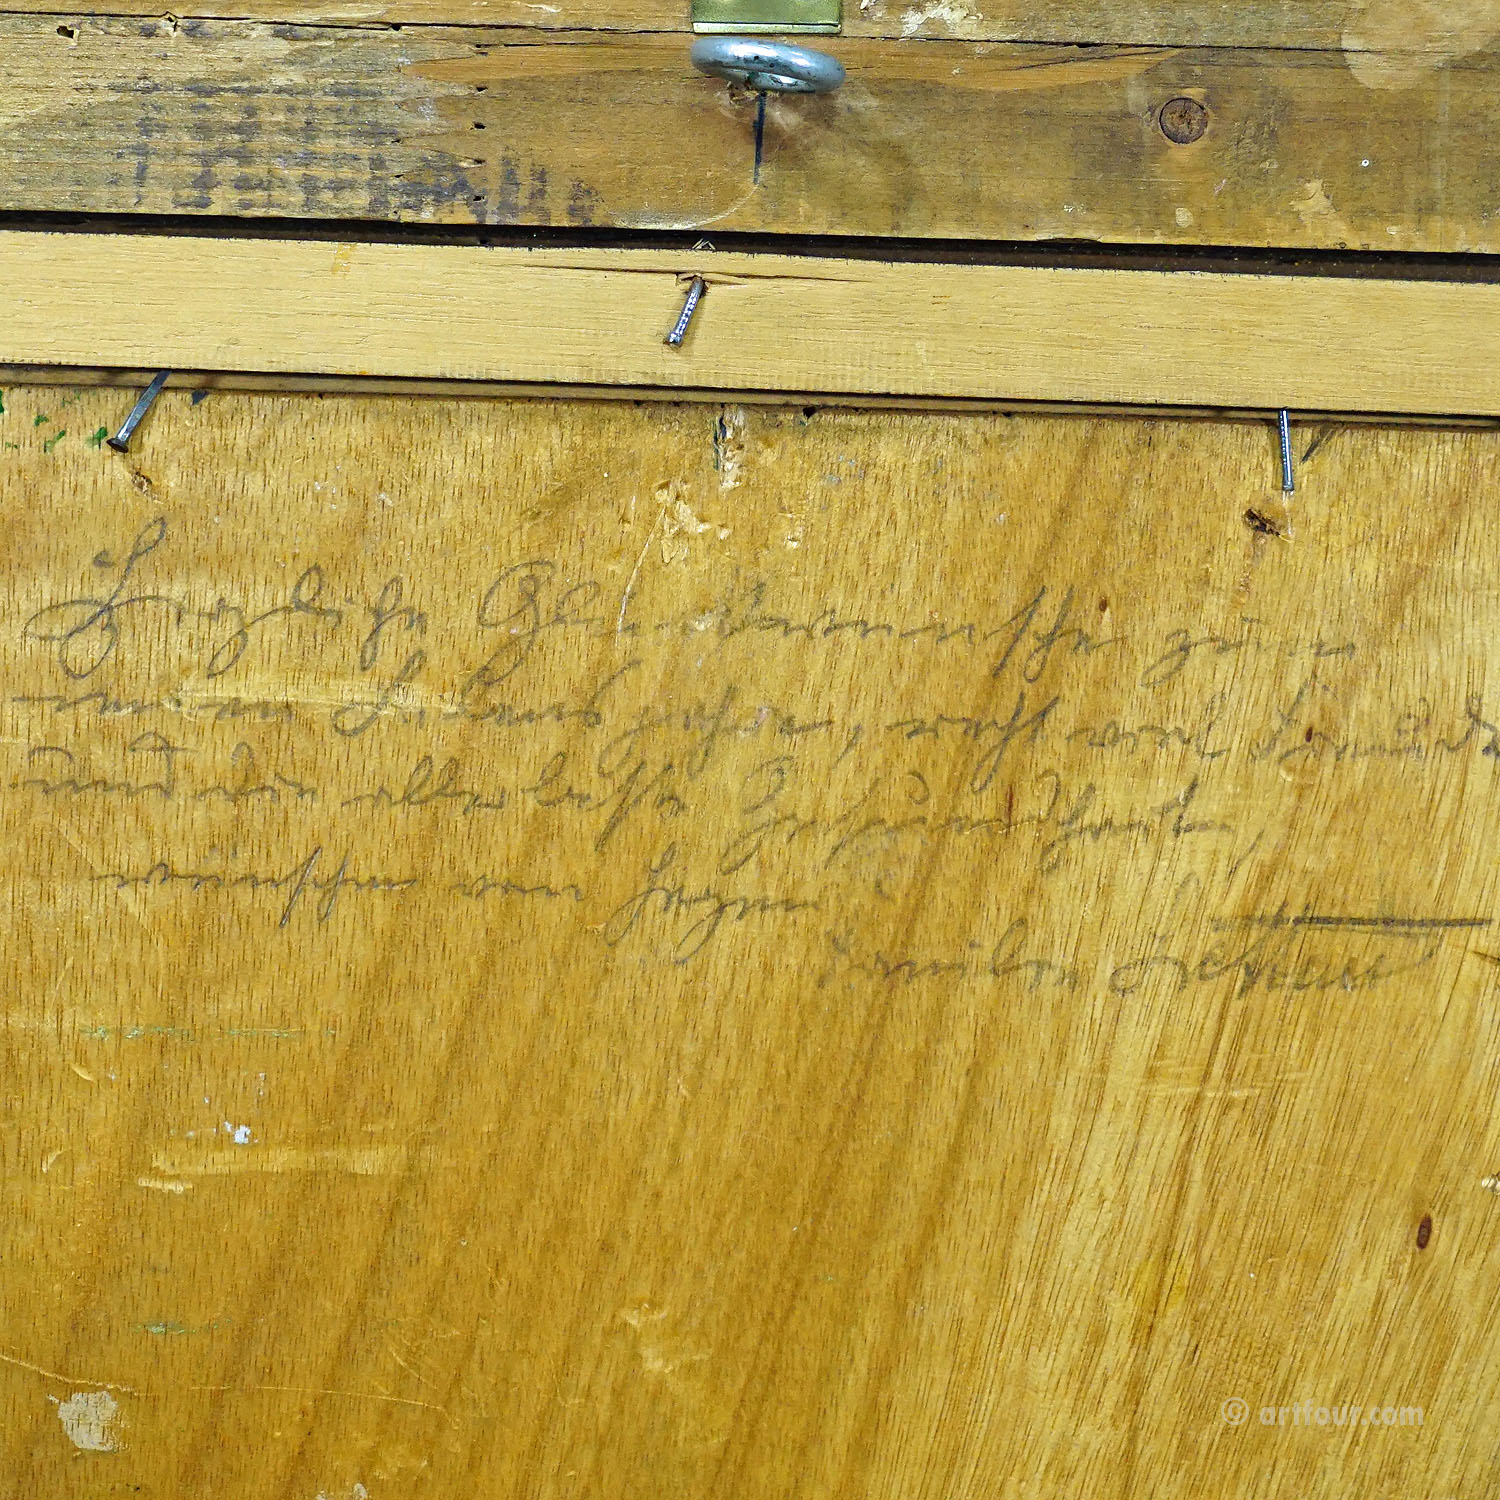 Herzliche Glückwünsche zum
neuen Lebensjahre, recht viel Freude
und die aller beste Gesundheit,
wünschen von Herzen
Familie
© artfour.com